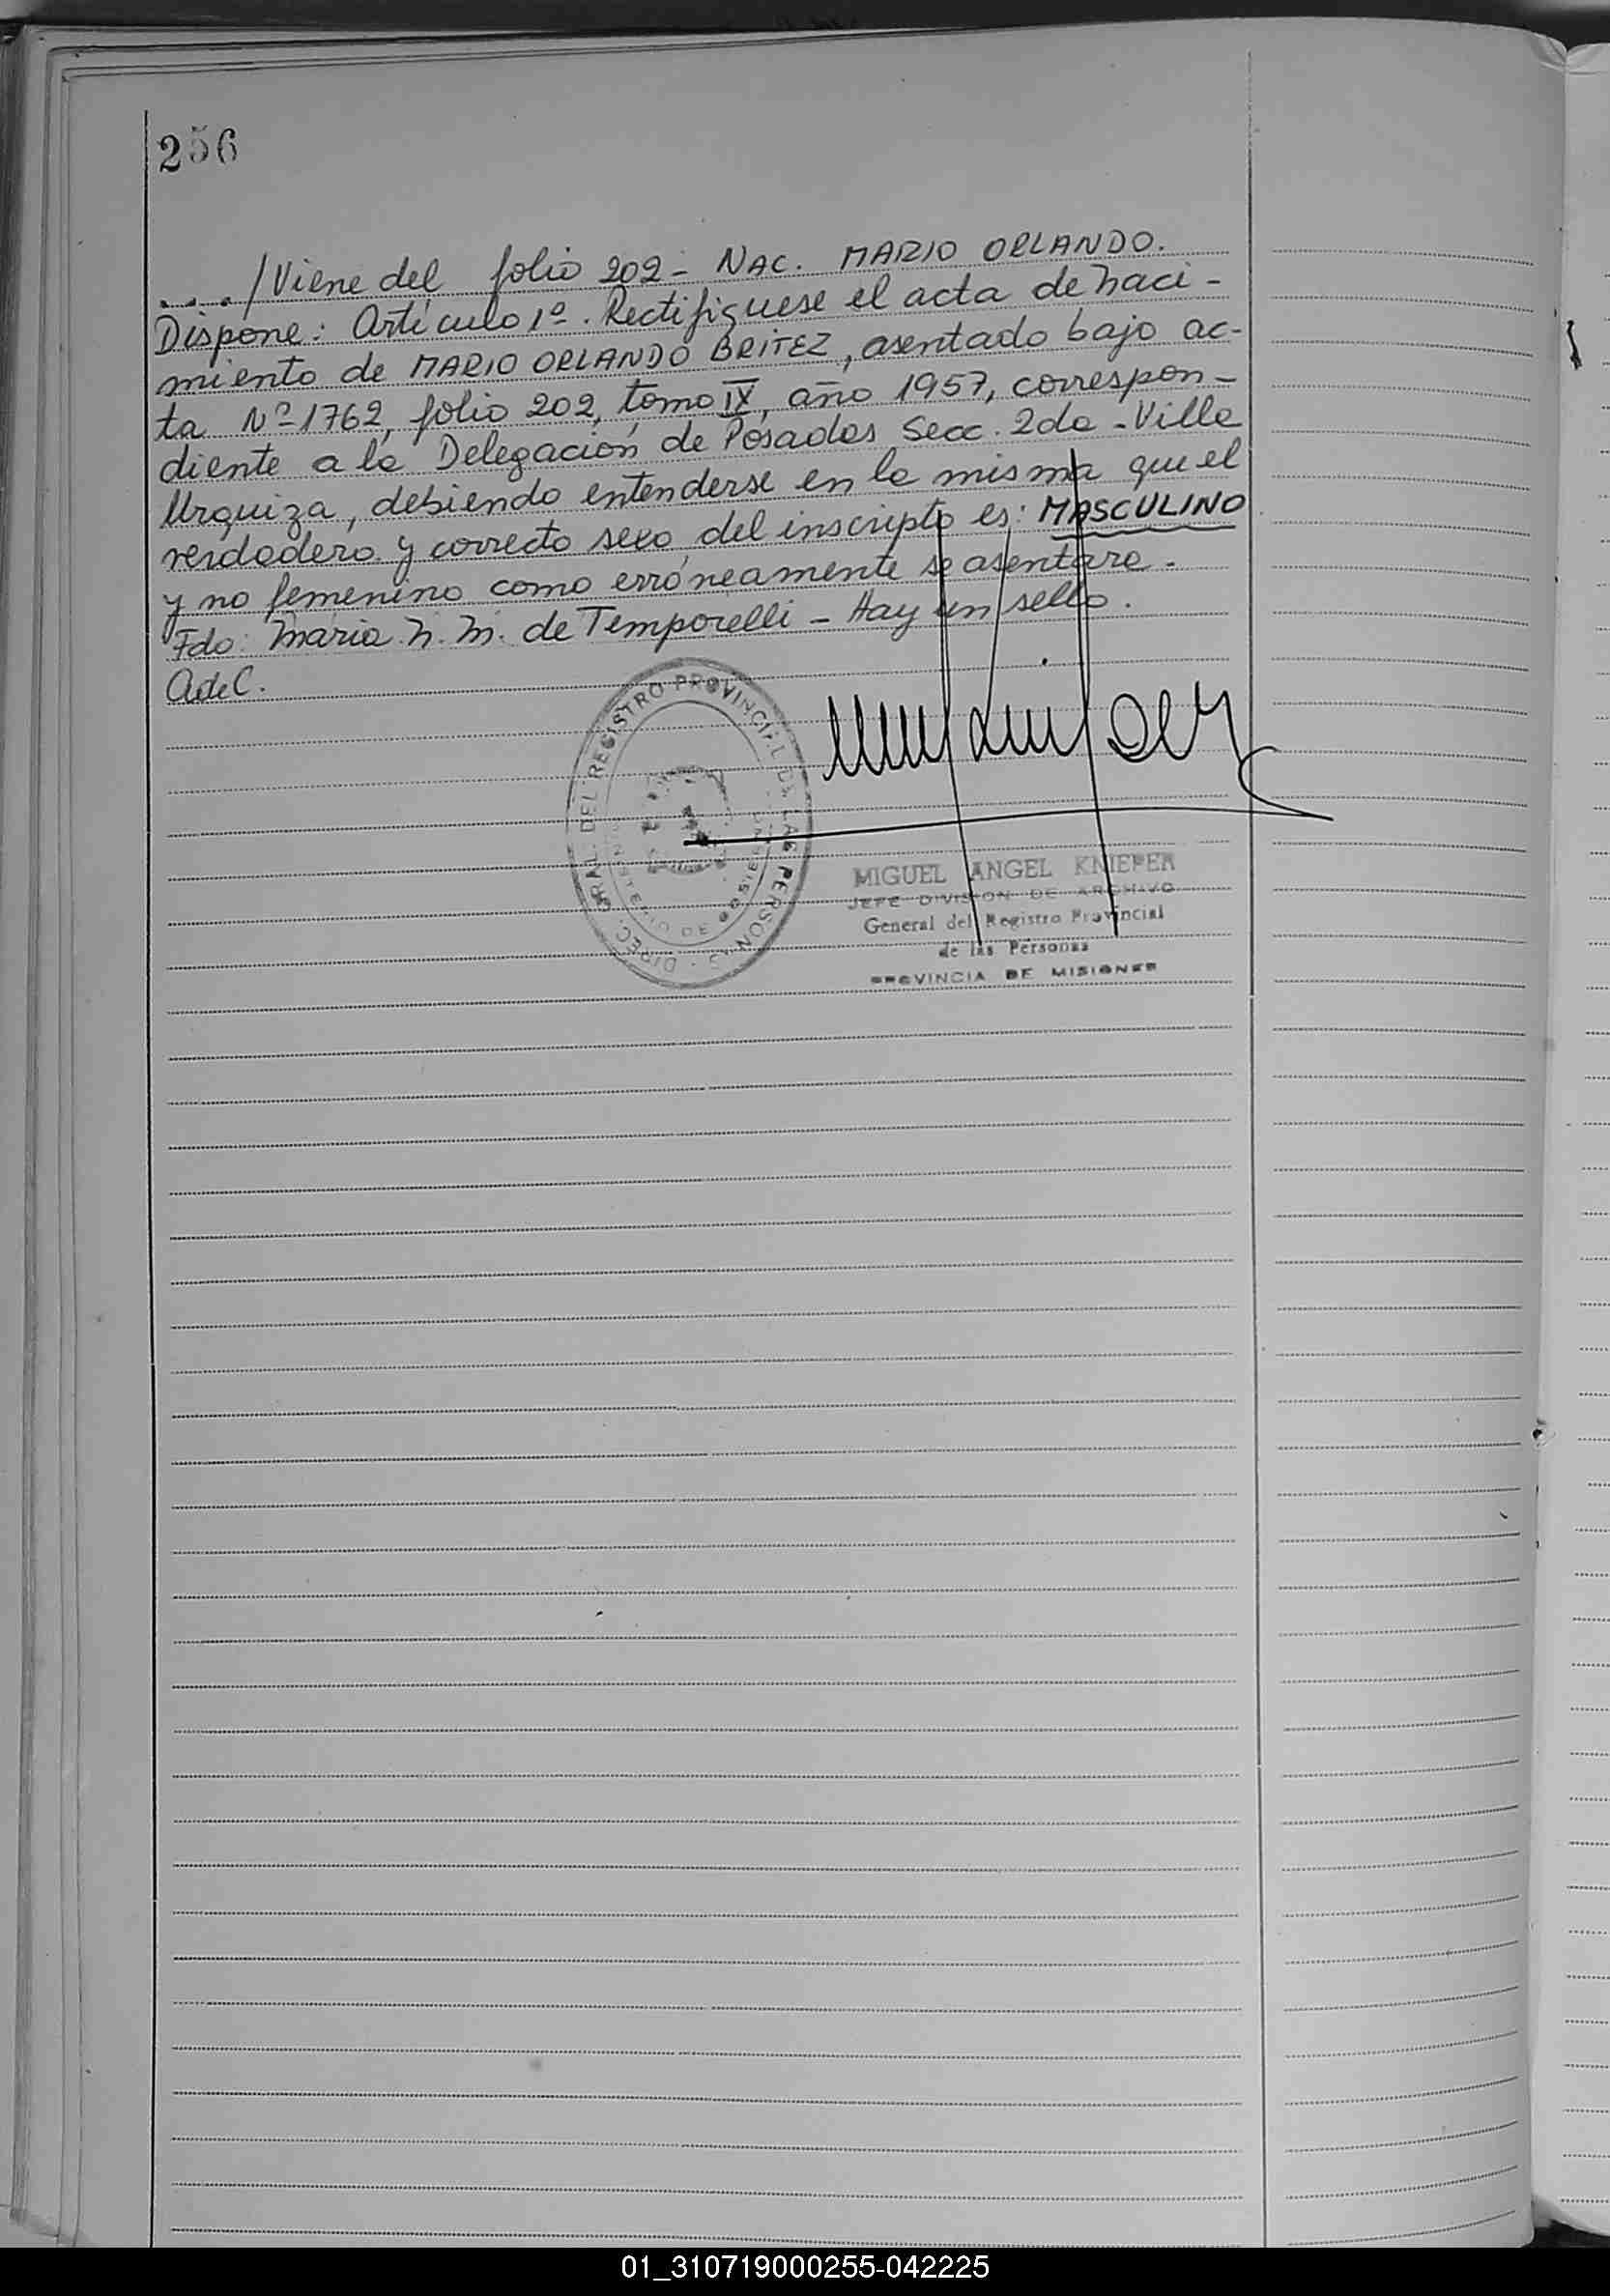 256
.../Viene del folio 202 - NAC. MARIO ORLANDO.
Dispone: Artículo 1º. Rectifíquese el acta de naci-
miento de MARIO ORLANDO BRITEZ, asentado bajo ac-
ta Nº 1762, folio 202, tomo IV, año 1957, correspon-
diente a la Delegación de Posadas Secc. 2da - Villa
Urquiza, debiendo entenderse en la misma que el
verdadero y correcto sexo del inscripto es: MASCULINO
y no femenino como erróneamente se asentara.
Fdo: Maria N. M. de Temporelli - Hay un sello.
AdeC.
DIREC. GRAL. DEL REGISTRO PROVINCIAL DE LAS PERSONAS
MINISTERIO DE GOBIERNO
MIGUEL ANGEL KNIEPER
JEFE DIVISION DE ARCHIVO
General del Registro Provincial
de las Personas
PROVINCIA DE MISIONES
01_310719000255-042225